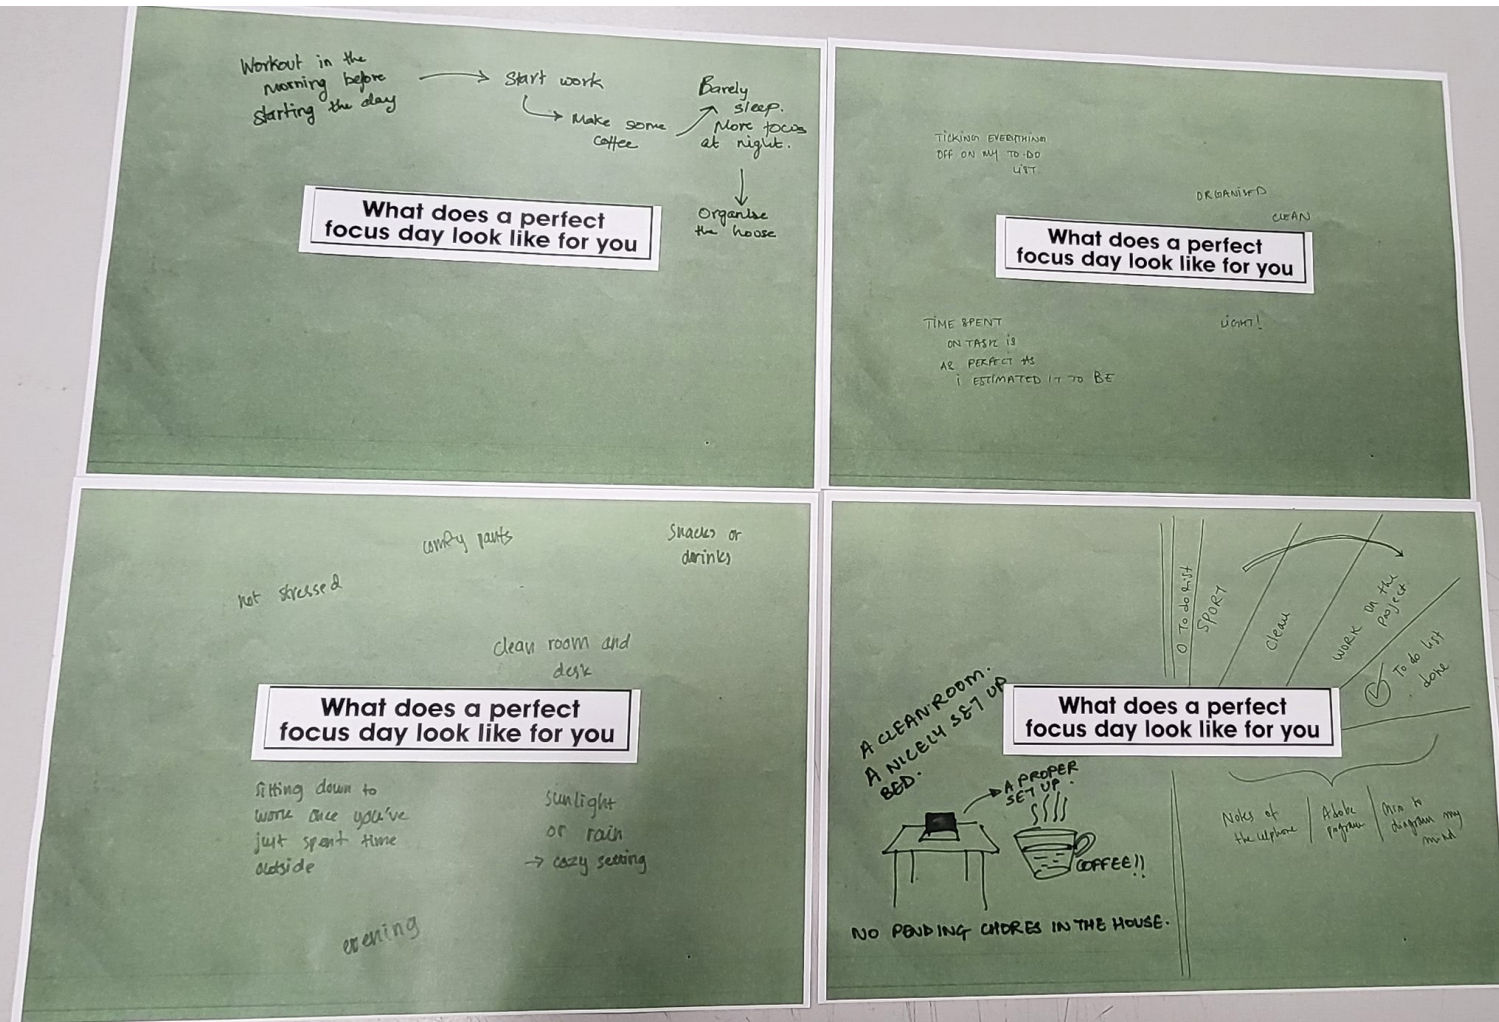 Workout in the
morning before
starting the day
Start work
Make some
coffee
Barely
sleep.
More focus
at night.
Organise
the house
What does a perfect
focus day look like for you
TICKING EVERYTHING
OFF ON MY TO-DO
LIST
ORGANISED
CLEAN
What does a perfect
focus day look like for you
TIME SPENT
ON TASK IS
AS PERFECT AS
i ESTIMATED IT TO BE
LIGHT!
comfy pants
Snacks or
drinks
not stressed
clean room and
desk
What does a perfect
focus day look like for you
sitting down to
work once you've
just spent time
outside
sunlight
or rain
→ cozy setting
evening
To do list
SPORT
Clean
WORK on the
project
To do list
done
A CLEAN ROOM.
A NICELY SET UP
BED.
What does a perfect
focus day look like for you
A PROPER
SET UP.
COFFEE!!
NO PENDING CHORES IN THE HOUSE.
Notes of
the
Adobe
program
to
diagram my
mind